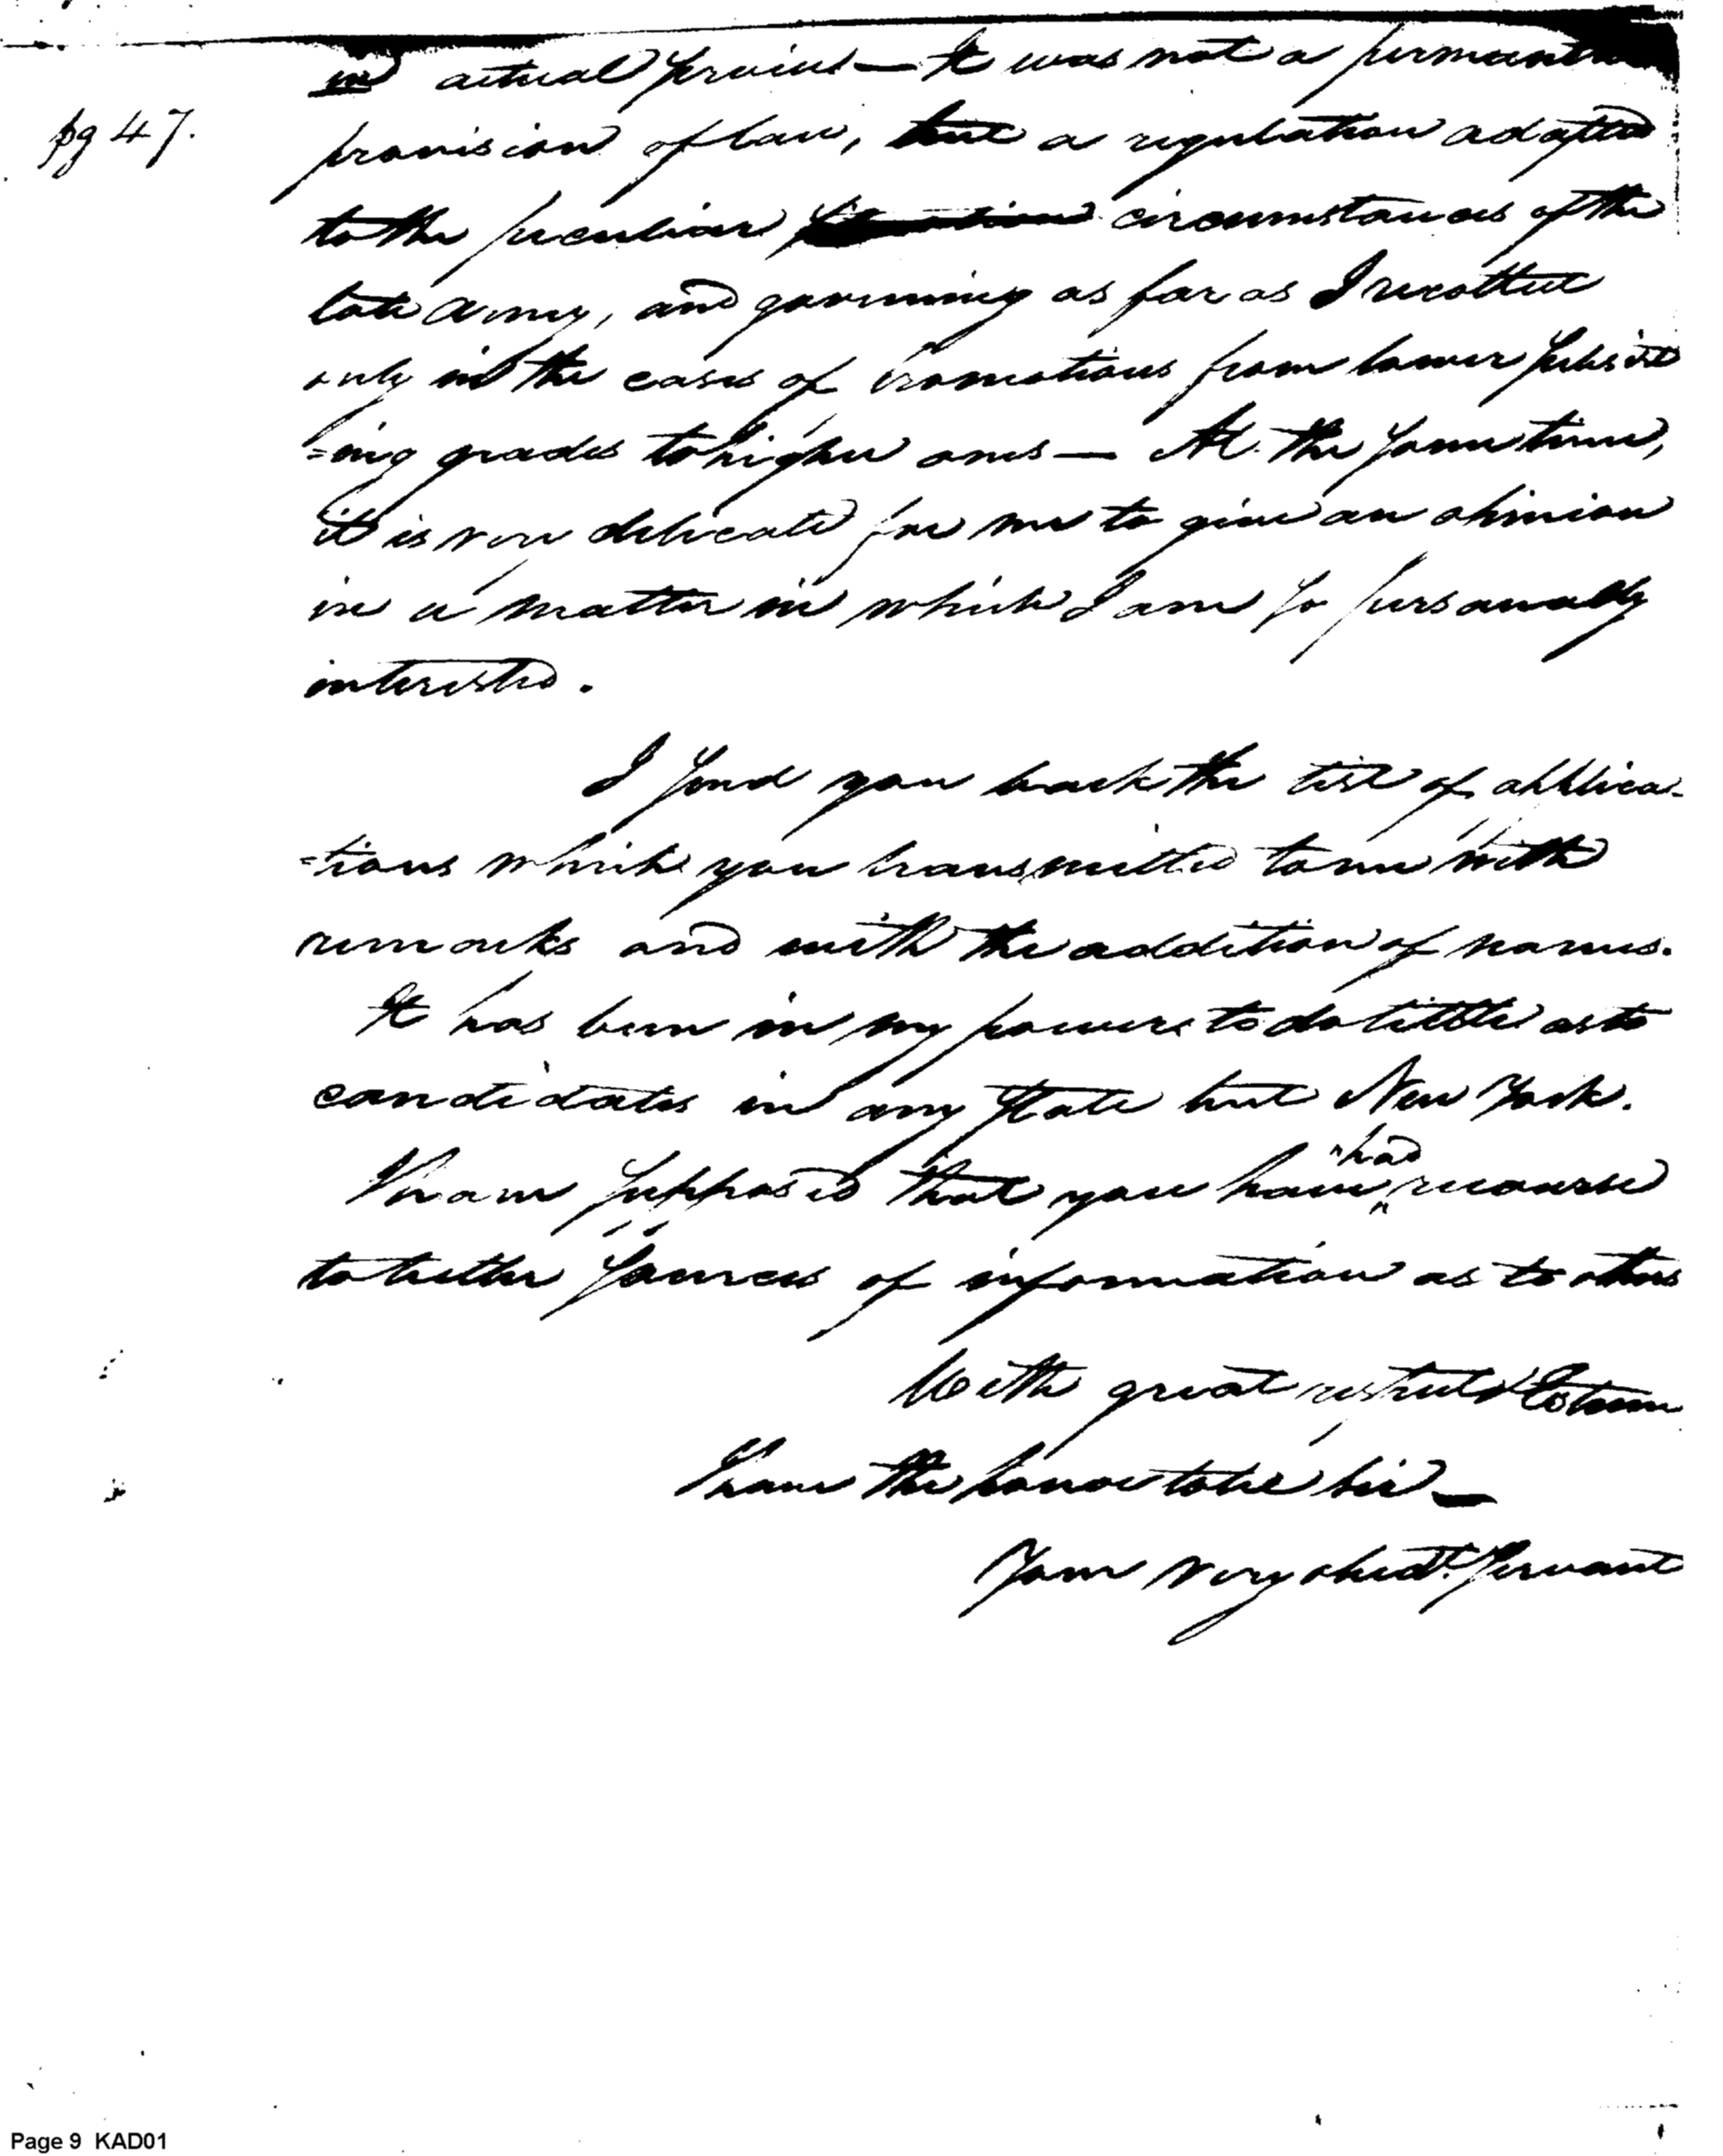 in actual service — It was not a permanent
pg 47.
provision of law, but a regulation adapted
to the peculiar situation circumstances of the
late army, and governing as far as I recollect
only in the cases of promotions from lower subsist
=ing grades to higher ones — At the same time,
it is very delicate for me to give an opinion
in a matter in which I am so personally
interested.
I send you back the list of applica-
=tions which you transmitted to me with
remarks and with the addition of names.
It has been in my power to do little as to
candidates in any State but New York.
I have supposed that you have had recourse
to better sources of information as to others
With great respect & Esteem
I have the honor to be Sir —
Your very obedt. servant
Page 9 KAD01